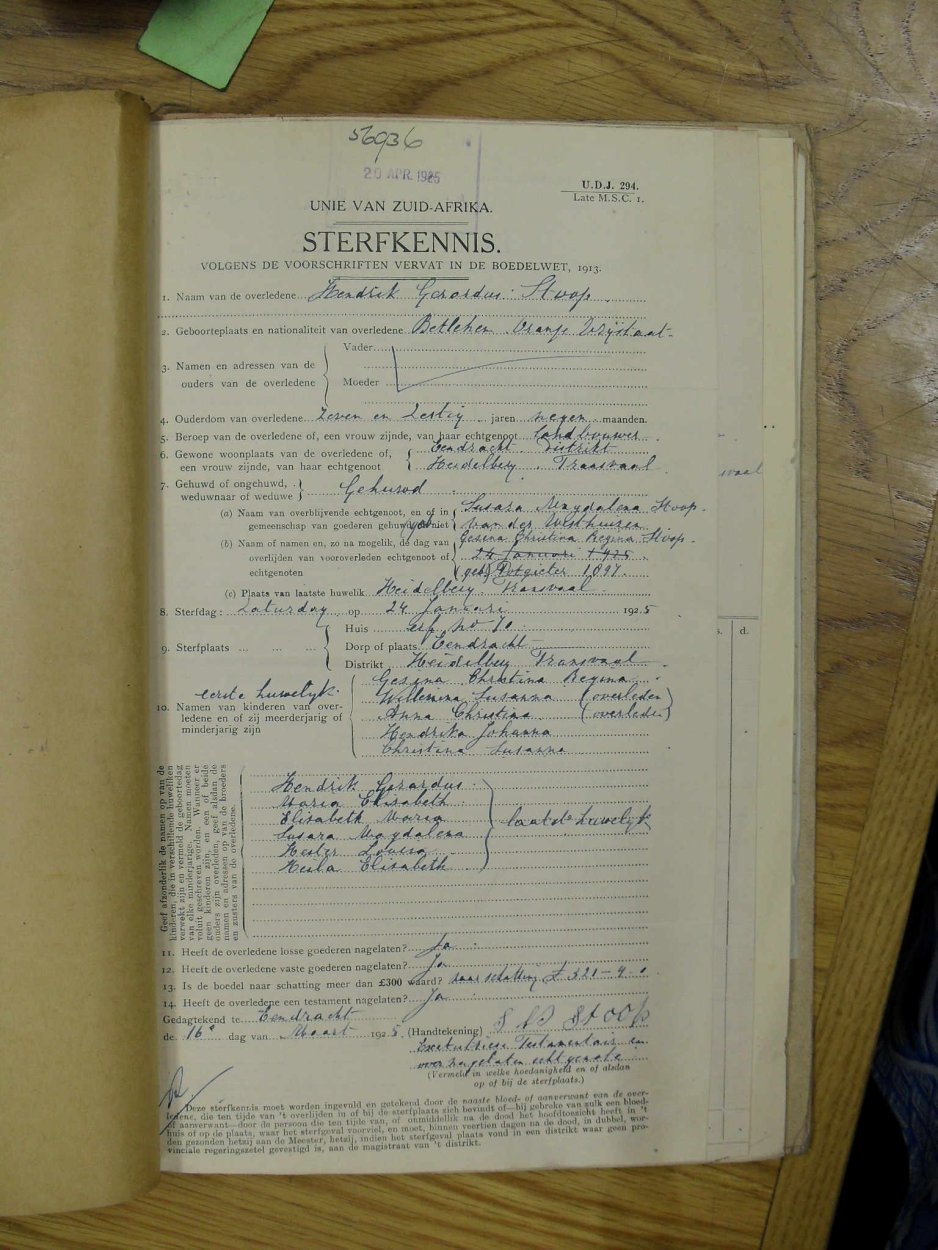 56936
20 APR. 1925
U.D.J. 294.
Late M.S.C. 1.
UNIE VAN ZUID-AFRIKA.
STERFKENNIS.
VOLGENS DE VOORSCHRIFTEN VERVAT IN DE BOEDELWET, 1913.
1. Naam van de overledene Hendrik Gerardus Stoop
2. Geboorteplaats en nationaliteit van overledene Betlehem Oranje Vrijstaat
3. Namen en adressen van de ouders van de overledene
Vader
Moeder
4. Ouderdom van overledene Zeven en Zestig jaren negen maanden.
5. Beroep van de overledene of, een vrouw zijnde, van haar echtgenoot Landbouwer
6. Gewone woonplaats van de overledene of, Eendracht Distrikt
een vrouw zijnde, van haar echtgenoot Heidelberg Transvaal
7. Gehuwd of ongehuwd, weduwnaar of weduwe Gehuwd
(a) Naam van overblijvende echtgenoot, en of in Susara Magdalena Stoop
gemeenschap van goederen gehuwd of niet geb van der Westhuizen
(b) Naam of namen en, zo na mogelik, de dag van Gesina Christina Regina Stoop
overlijden van vooroverleden echtgenoot of 24 Januari 1925
echtgenoten (geb) Potgieter 1897.
(c) Plaats van laatste huwelik Heidelberg Transvaal
8. Sterfdag: Zaturday op 24 Januari 1925
9. Sterfplaats
Huis erf no 70
Dorp of plaats Eendracht
Distrikt Heidelberg Transvaal
eerste huwelyk
10. Namen van kinderen van overledene en of zij meerderjarig of minderjarig zijn
Gesina Christina Regina
Willemina Susanna (overleden)
Anna Christina (overleden)
Hendrika Johanna
Christina Susanna
Geef afzonderlik de namen op van de
kinderen, die in verschillende huweliken
verwekt zijn en vermeld de geboortedag
van elke minderjarige. Namen moeten
voluit geschreven worden. Wanneer er
geen kinderen zijn, en een of beide
ouders zijn overleden, geef alsdan de
namen en adressen op van de broeders
en zusters van de overledene.
Hendrik Gerardus
Maria Elisabeth
Elisabeth Maria
Susara Magdalena
Hester Louisa
Hesla Elisabeth
laatste huwelyk
11. Heeft de overledene losse goederen nagelaten? Ja
12. Heeft de overledene vaste goederen nagelaten? Ja
13. Is de boedel naar schatting meer dan £300 waard? naar schatting £ 321-4-0
14. Heeft de overledene een testament nagelaten? Ja
Gedagtekend te Eendracht
de 16e dag van Maart 1925 (Handtekening) S M Stoop
Executrice Testamentair en
overnagelaten echtgenote
(Vermeld in welke hoedanigheid en of alsdan
op of bij de sterfplaats.)
Deze sterfkennis moet worden ingevuld en getekend door de naaste bloed- of aanverwant van de over-
ledene, die ten tijde van 't overlijden in of bij de sterfplaats zich bevindt of—bij gebreke van zulk een bloed-
of aanverwant—door de persoon die ten tijde van, of onmiddellik na de dood het hoofdtoezicht heeft in 't
huis of op de plaats, waar het sterfgeval voorviel, en moet, binnen veertien dagen na de dood, in dubbel, wor-
den gezonden hetzij aan de Meester, hetzij, indien het sterfgeval plaats vond in een distrikt waar geen pro-
vinciale regeringszetel gevestigd is, aan de magistraat van 't distrikt.
s. d.